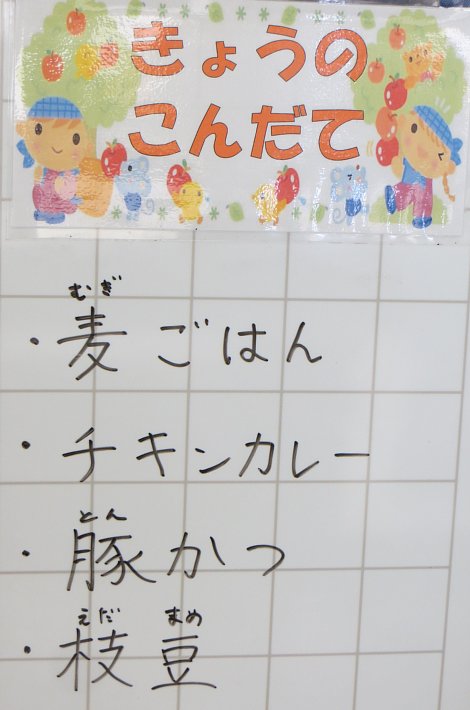 きょうの
こんだて
むぎ
・麦ごはん
・チキンカレー
とん
・豚かつ
えだ まめ
・枝豆